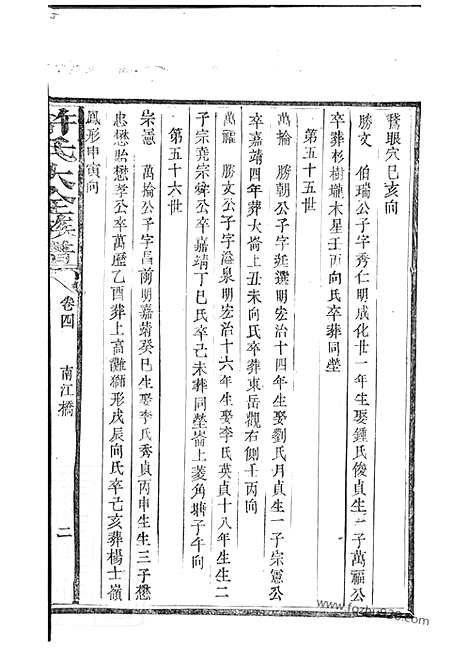 鵞眼穴巳亥向
勝文　伯瑞公子字秀仁明成化廿一年生娶鍾氏俊貞生一子萬福公
卒葬杉樹壠木星壬丙向氏卒葬同塋
第五十五世
萬掄　勝朝公子字廷選明宏治十四年生娶劉氏月貞生一子宗憲公
卒嘉靖四年葬大崙上丑未向氏卒葬東岳觀右側壬丙向
萬福　勝文公子字溢泉明宏治十六年生娶李氏英貞十八年生生二
子宗堯宗舜公卒嘉靖丁巳氏卒己未葬同塋崙上菱角塘子午向
第五十六世
宗憲　萬掄公子字昌前明嘉靖癸巳生娶李氏秀貞丙申生生三子懋
忠懋貽懋孝公卒萬歷乙酉葬上高灘獅形戌辰向氏卒己亥葬楊士嶺
鳳形申寅向
許氏大全族譜
卷四
南江橋
二
www.fgzhuo920.com